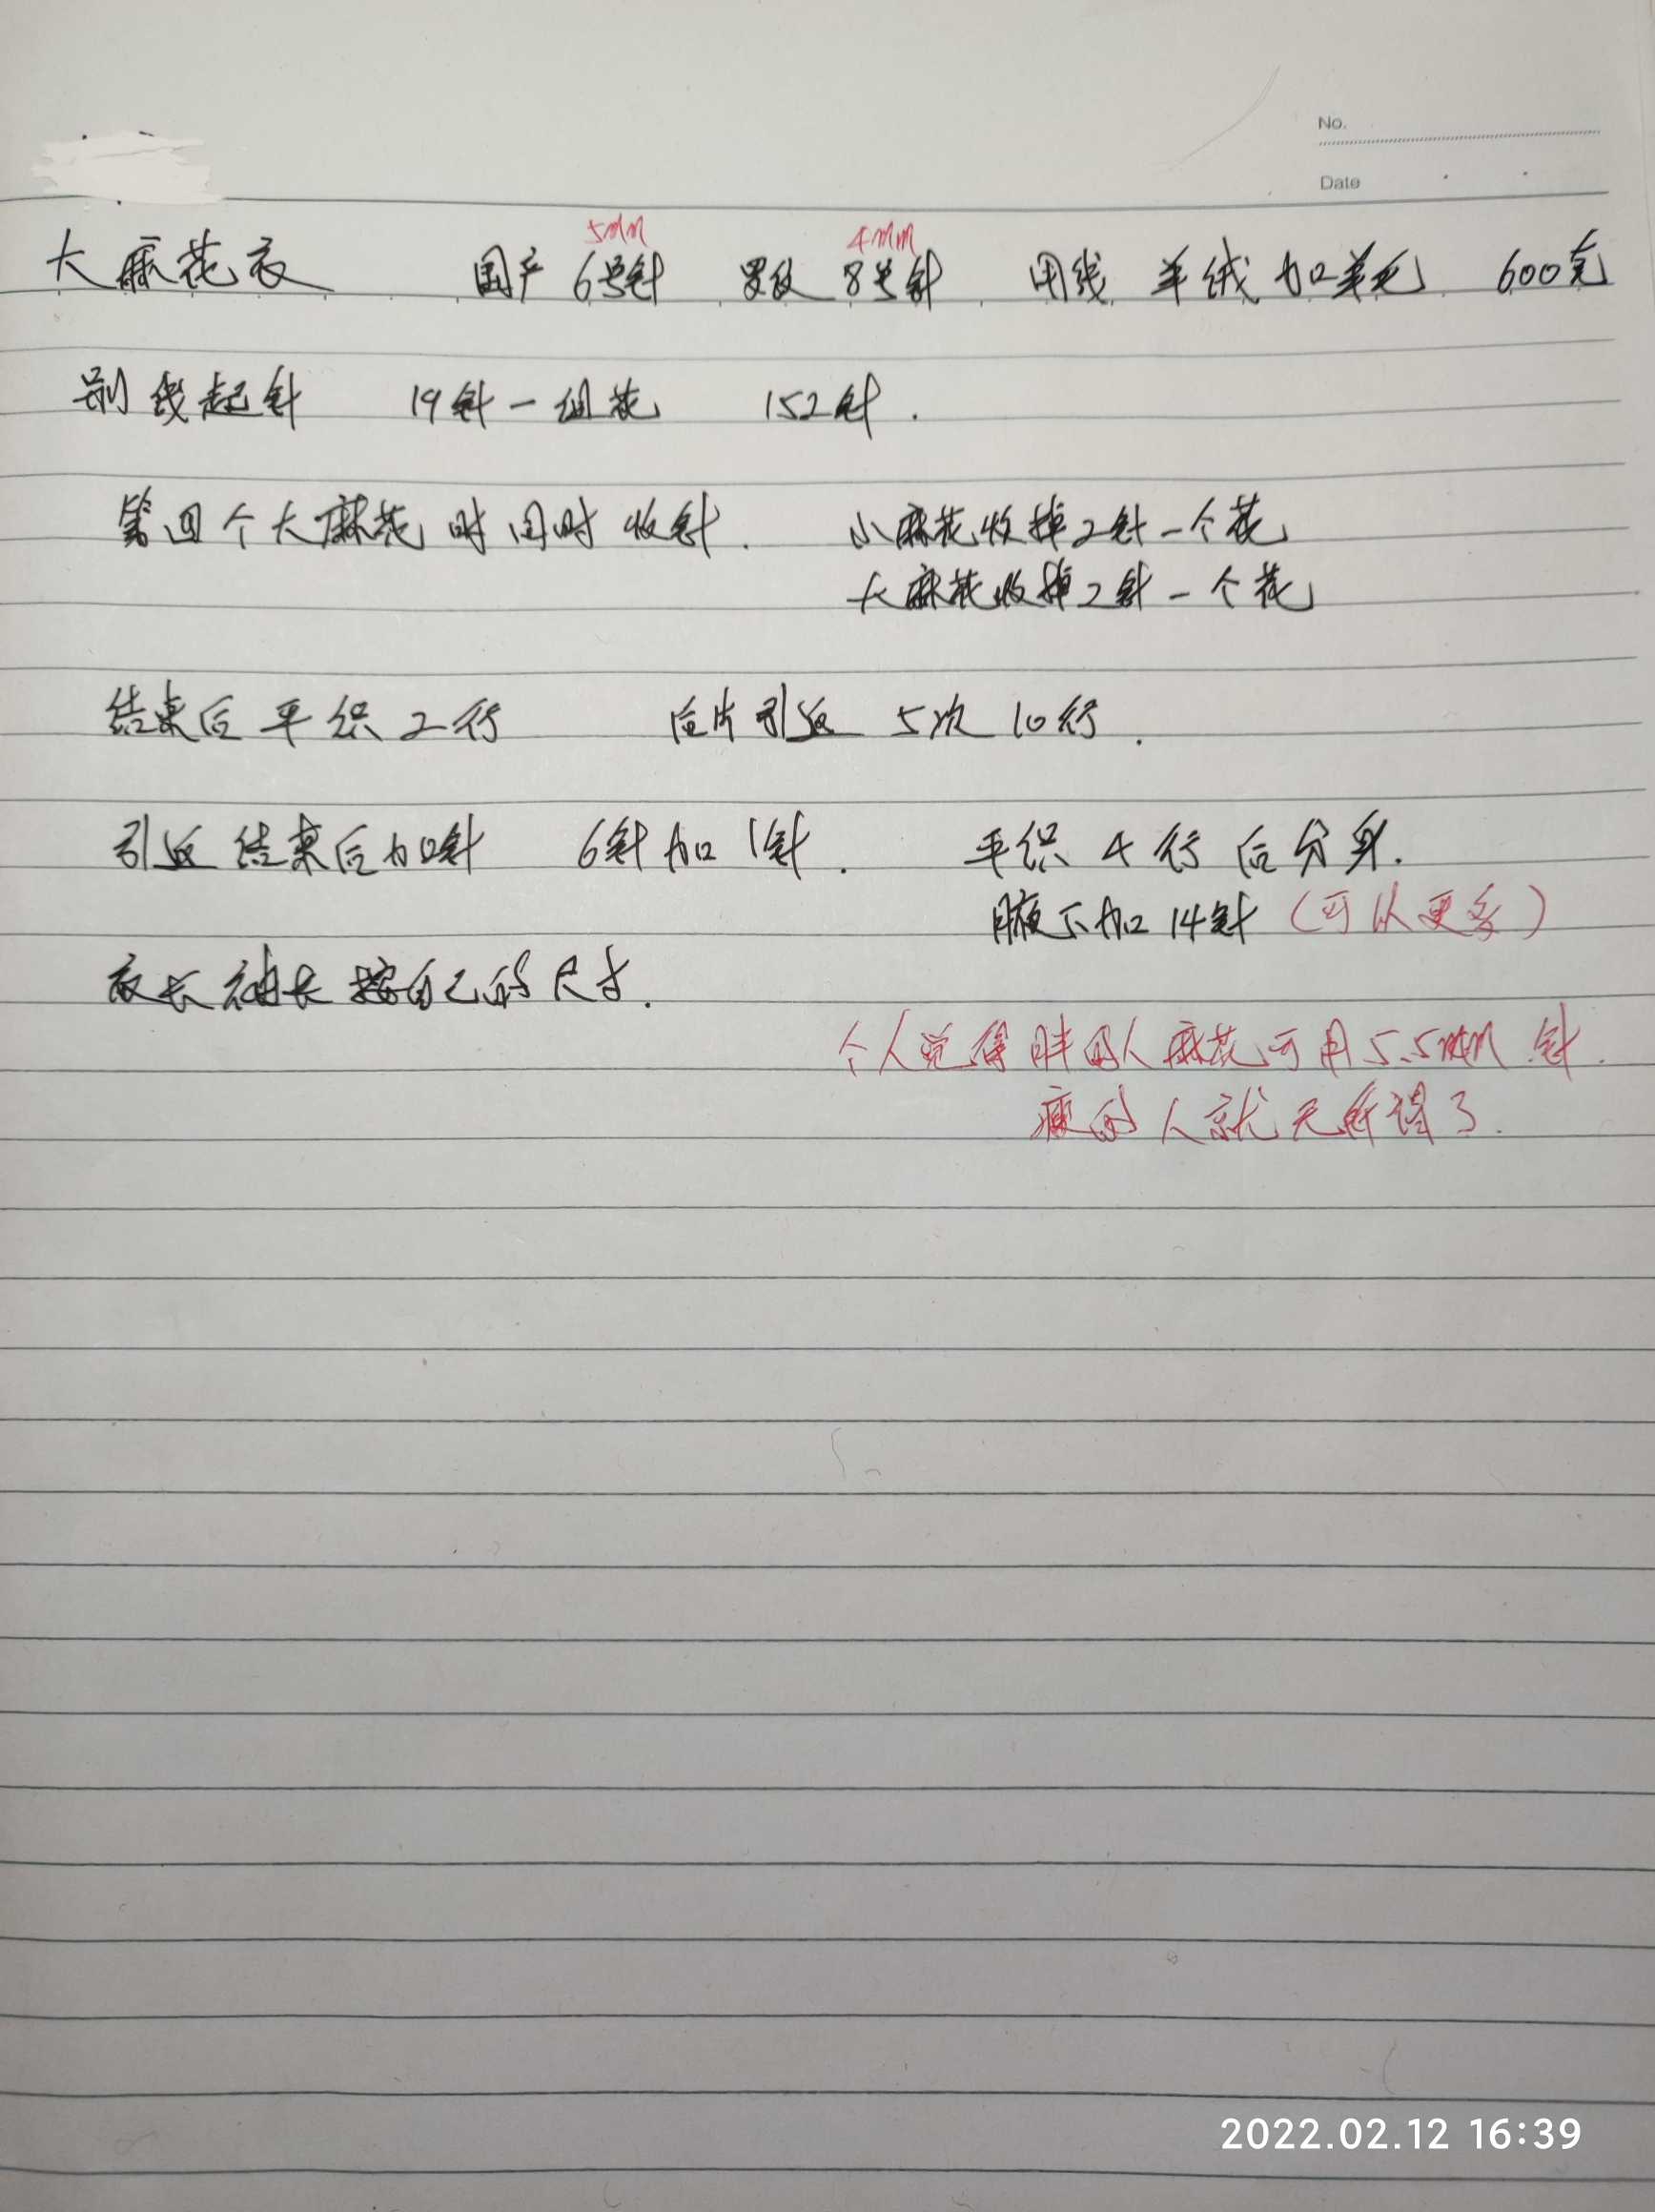 No.
Date
5mm 4mm
大麻花衣 国产 6号针 罗纹 8号针 用线 羊绒加羊毛 600克
别线起针 19针一组花 152针.
第四个大麻花时同时收针. 小麻花收掉2针一个花
大麻花收掉2针一个花
结束后平织2行 后片引返 5次10行.
引返结束后加针 6针加1针. 平织4行后分身.
腋下加14针(可以更多)
衣长袖长按自己的尺寸.
个人觉得胖的人麻花可用5.5mm针.
瘦的人就无所谓了.
2022.02.12 16:39